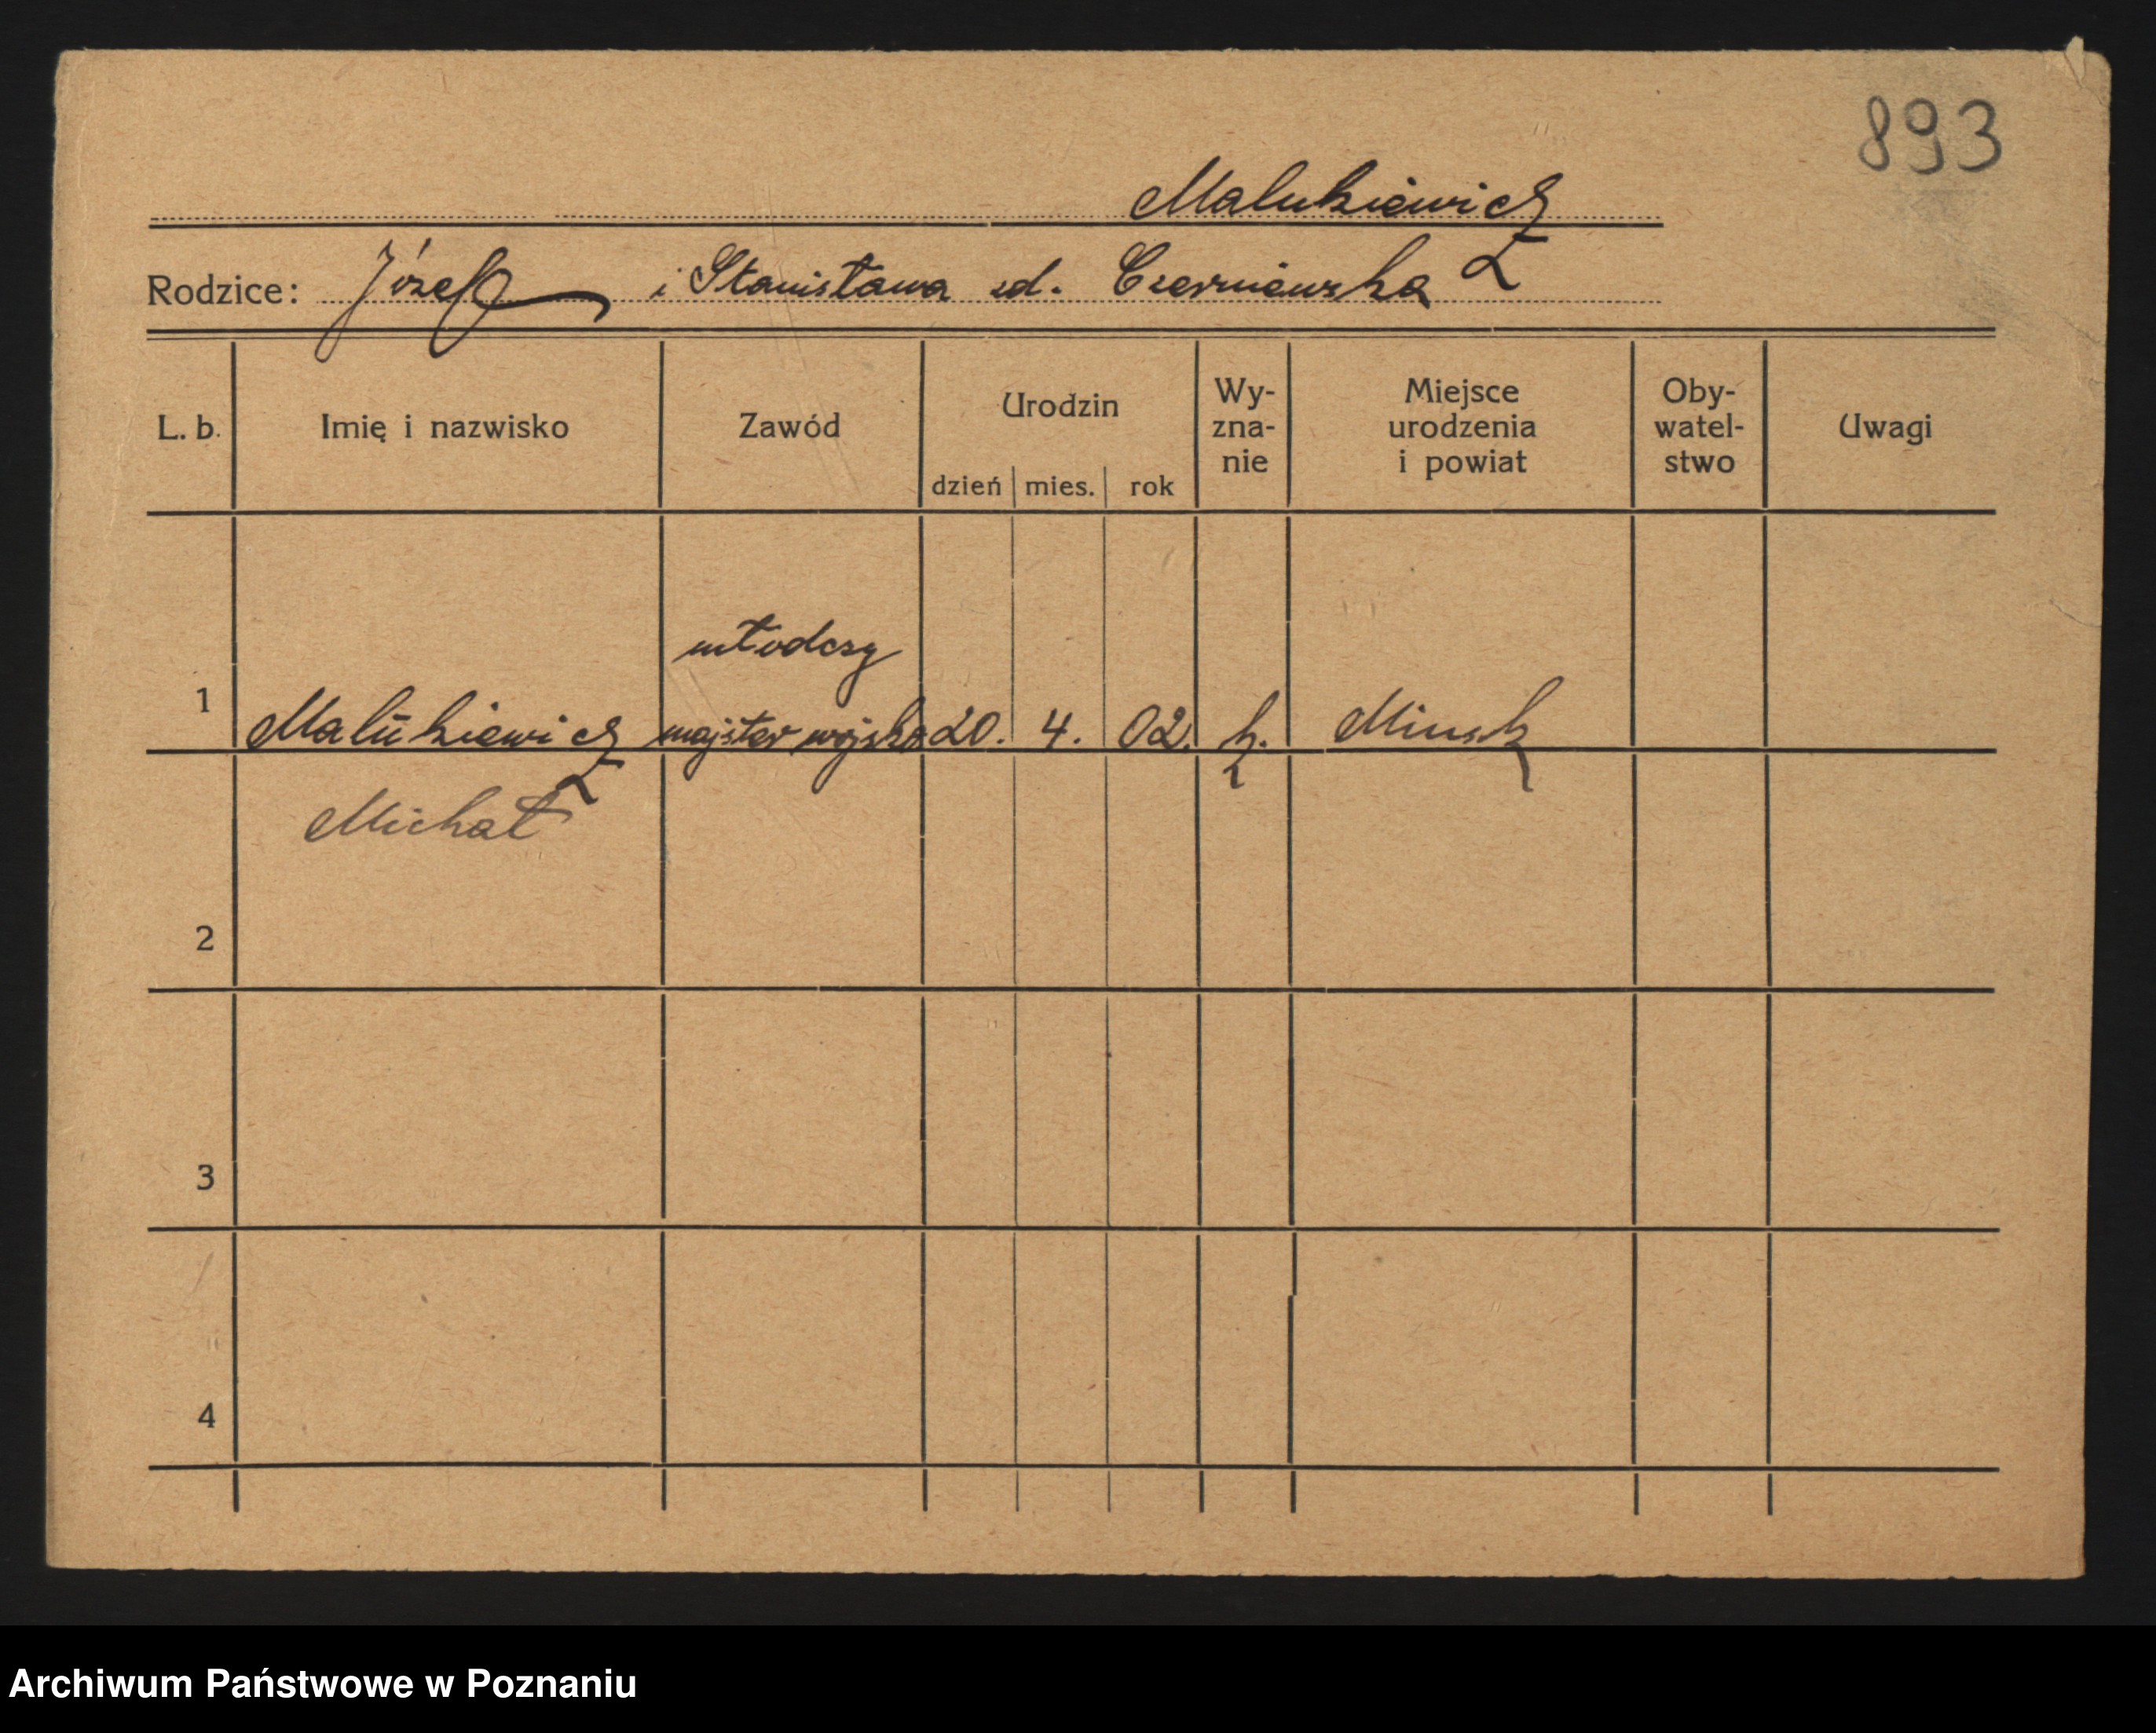 893
Malukiewicz
Rodzice: Józef i Stanisława zd. Czerniewska
L. b. Imię i nazwisko Zawód Urodzin dzień mies. rok Wy-zna-nie Miejsce urodzenia i powiat Oby-watel-stwo Uwagi
młodszy
1 Malukiewicz majster wojsko 20. 4. 02. k. Minsk
Michał
2
3
4
Archiwum Państwowe w Poznaniu